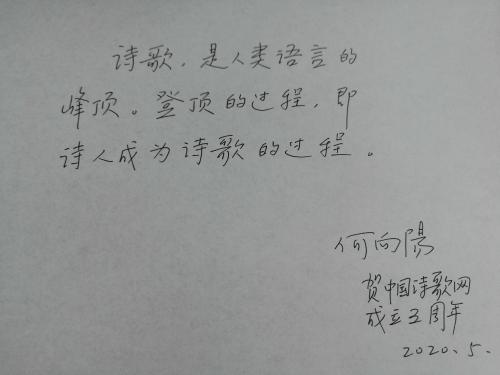 诗歌，是人类语言的
峰顶。登顶的过程，即
诗人成为诗歌的过程。
何向陽
贺中国诗歌网
成立五周年
2020.5.